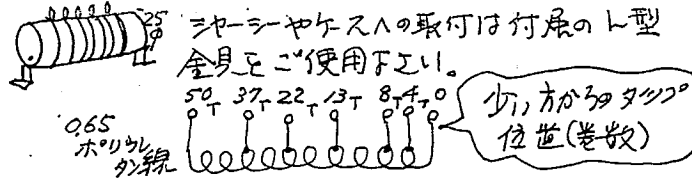 25φ
シャーシーやケースへの取付は付属のL型
金具をご使用下さい。
50T 37T 22T 13T 8T 4T 0
0.65
ポリウレ
タン線
少い方からのタップ
位置(巻数)